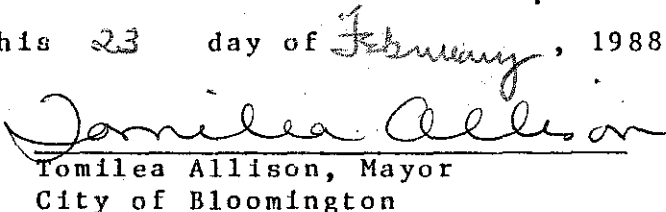 his 23 day of February, 1988
Tomilea Allison
Tomilea Allison, Mayor
City of Bloomington